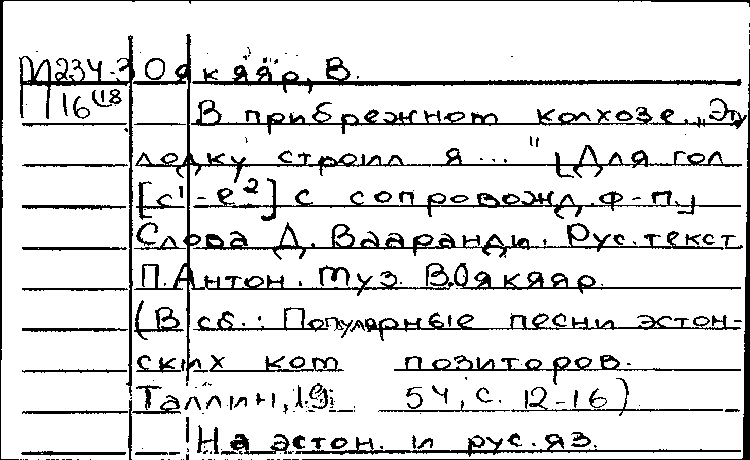 М234-3 Оякяяр, В.
П16(18 В прибрежном колхозе. „Эту
лодку строил я..." [Для гол
[c¹-e²] с сопровожд. ф-п.]
Слова Д. Вааранди. Рус. текст
П. Антон. Муз. В. Оякяяр.
(В сб.: Популярные песни эстон-
ских ком позиторов.
Таллин, 19 54, с. 12-16)
На эстон. и рус. яз.